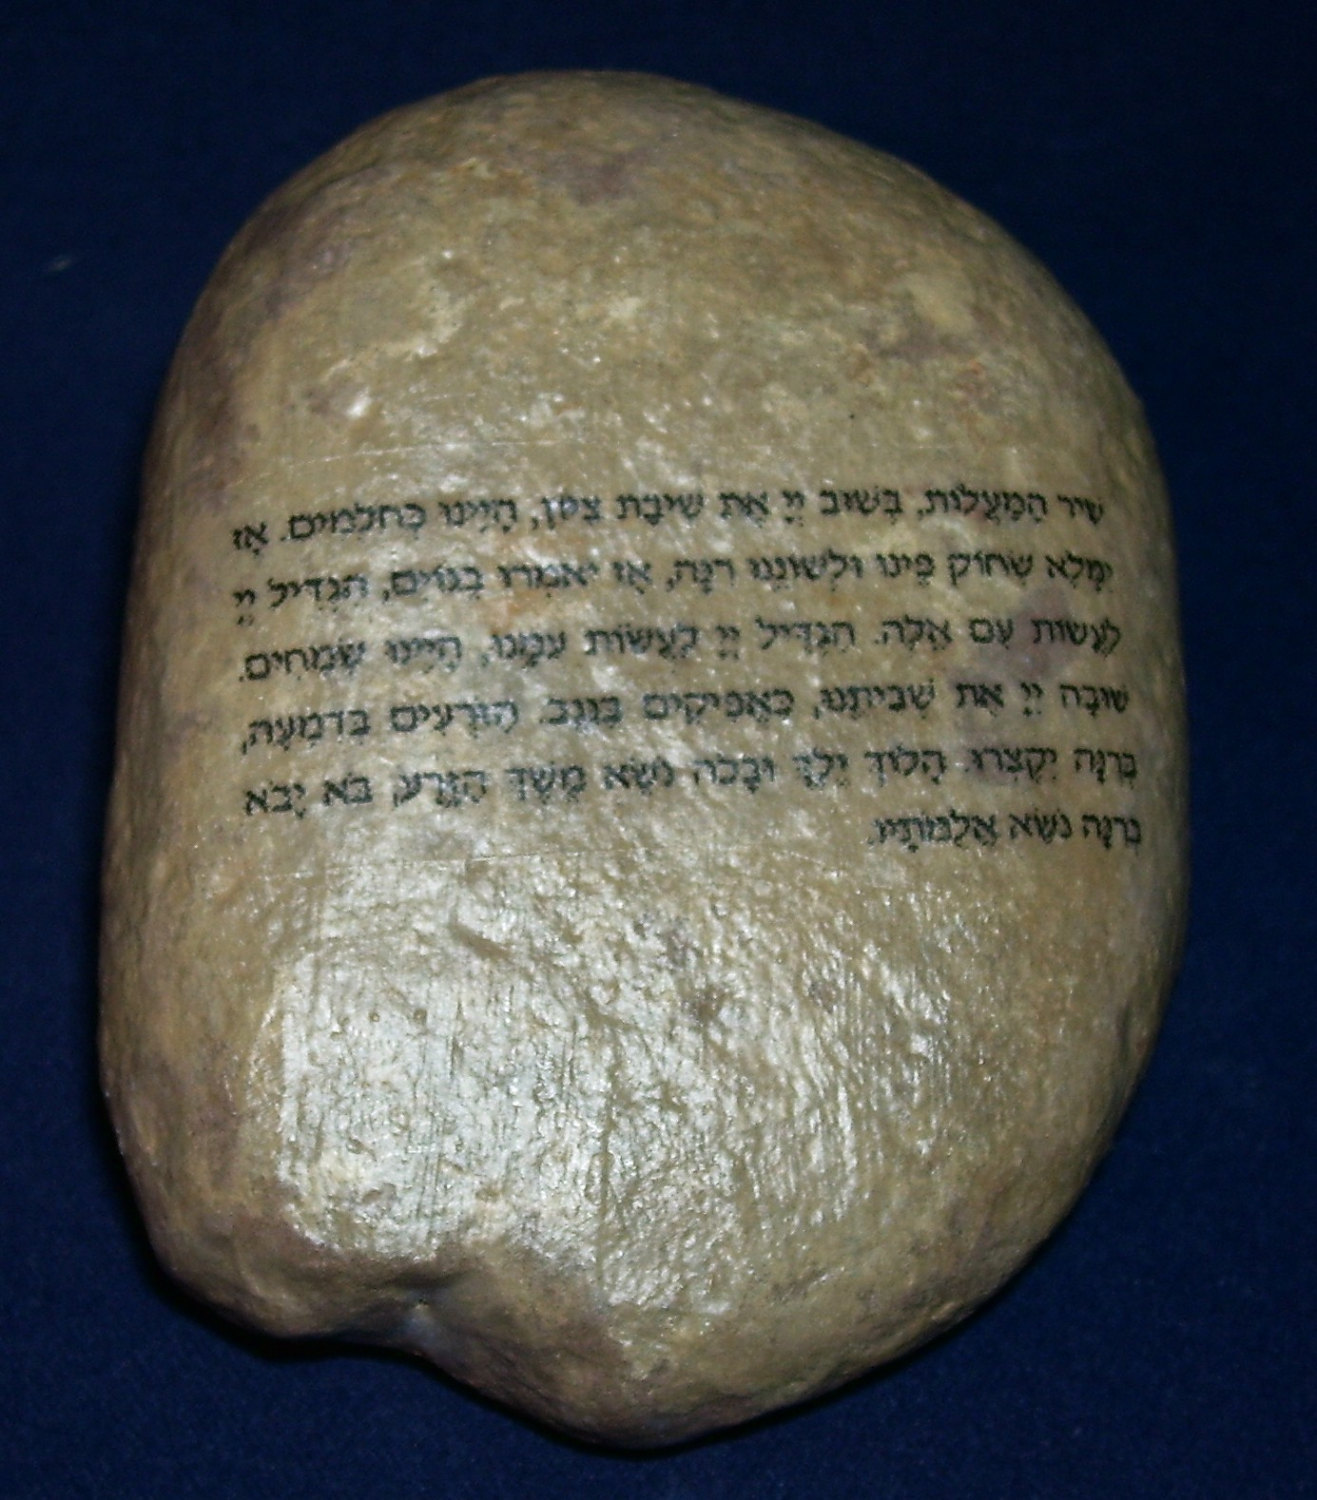 שִׁיר הַמַּעֲלוֹת, בְּשׁוּב יְיָ אֶת שִׁיבַת צִיּוֹן, הָיִינוּ כְּחֹלְמִים. אָז
יִמָּלֵא שְׂחוֹק פִּינוּ וּלְשׁוֹנֵנוּ רִנָּה, אָז יֹאמְרוּ בַגּוֹיִם, הִגְדִּיל יְיָ
לַעֲשׂוֹת עִם אֵלֶּה. הִגְדִּיל יְיָ לַעֲשׂוֹת עִמָּנוּ, הָיִינוּ שְׂמֵחִים.
שׁוּבָה יְיָ אֶת שְׁבִיתֵנוּ, כַּאֲפִיקִים בַּנֶּגֶב. הַזֹּרְעִים בְּדִמְעָה,
בְּרִנָּה יִקְצֹרוּ. הָלוֹךְ יֵלֵךְ וּבָכֹה נֹשֵׂא מֶשֶׁךְ הַזָּרַע, בֹּא יָבֹא
בְרִנָּה נֹשֵׂא אֲלֻמֹּתָיו.